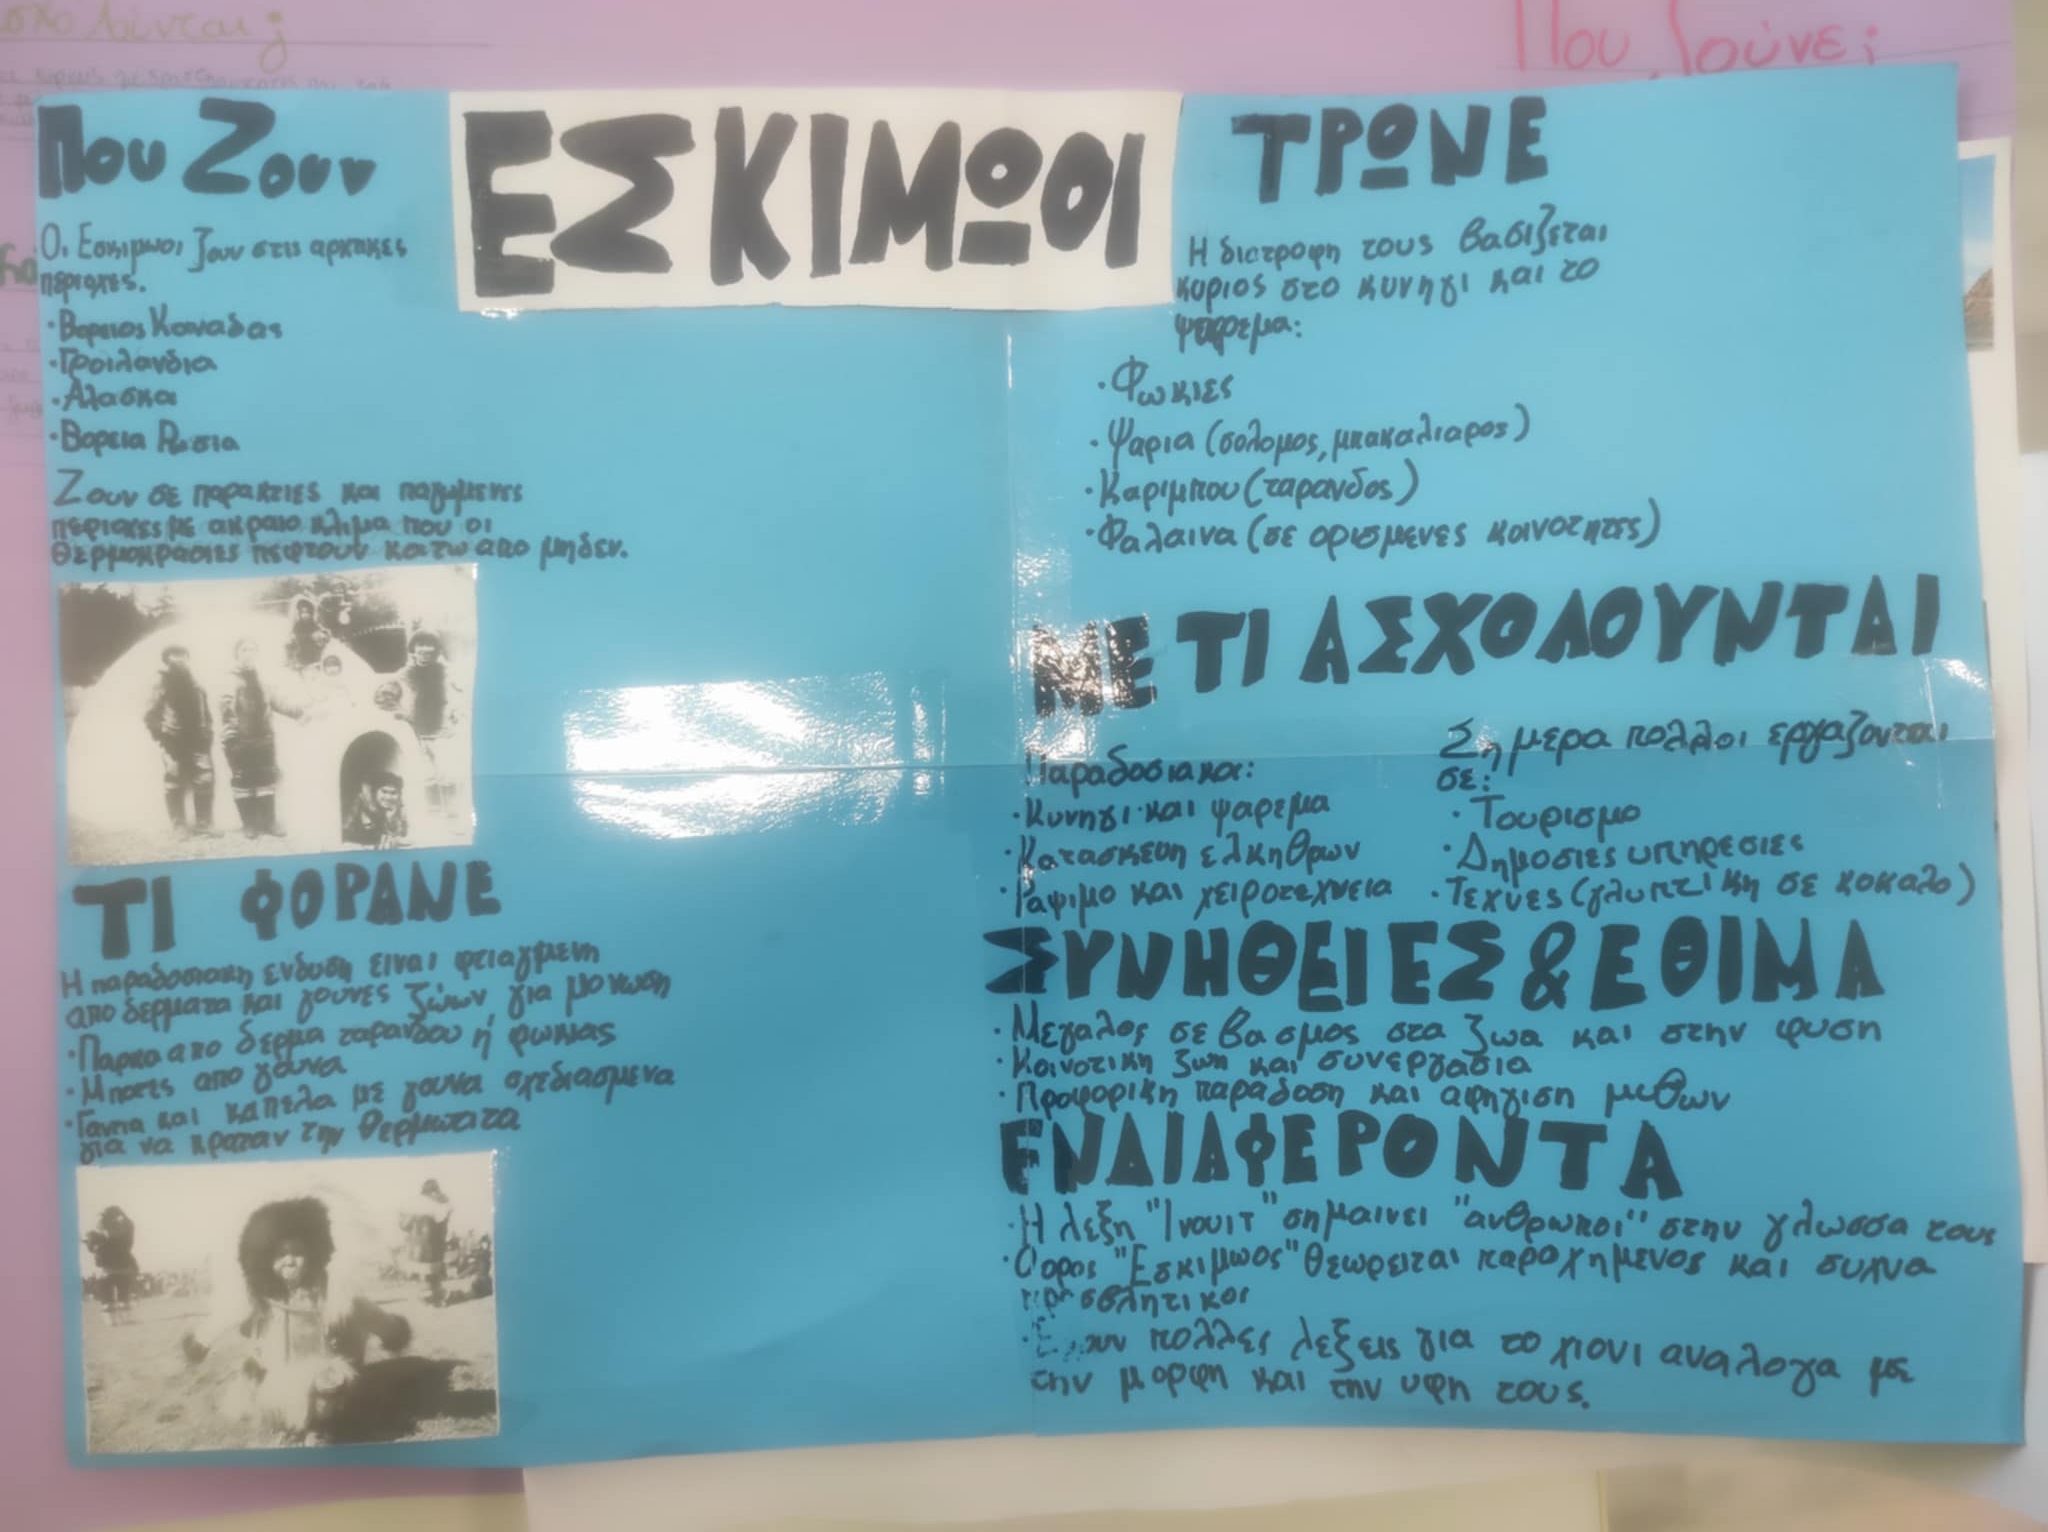 Που ζούνε;
ΕΣΚΙΜΩΟΙ
Που Ζουν
Οι Εσκιμωοι ζουν στις αρκτικες
περιοχες.
·Βορειος Καναδας
·Γροιλανδια
·Αλασκα
·Βορεια Ρωσια
Ζουν σε παρακτιες και παγωμενες
περιοχες με ακραιο κλιμα που οι
θερμοκρασιες πεφτουν κατω απο μηδεν.
ΤΙ ΦΟΡΑΝΕ
Η παραδοσιακη ενδυση ειναι φτιαγμενη
απο δερματα και γουνες ζώων, για μονωση
·Παρκα απο δερμα ταρανδου ή φωκιας
·Μποτες απο γουνα
·Γαντια και καπελα με γουνα σχεδιασμενα
για να κραταν την θερμωτητα
ΤΡΩΝΕ
Η διατροφη τους βασιζεται
κυριος στο κυνηγι και το
ψαρεμα:
·Φωκιες
·Ψαρια (σολομος, μπακαλιαρος)
·Καριμπου (ταρανδος)
·Φαλαινα (σε ορισμενες κοινοτητες)
ΜΕ ΤΙ ΑΣΧΟΛΟΥΝΤΑΙ
Παραδοσιακα:
·Κυνηγι και ψαρεμα
·Κατασκευη ελκηθρων
·Ραψιμο και χειροτεχνεια
Σημερα πολλοι εργαζονται
σε:
·Τουρισμο
·Δημοσιες υπηρεσιες
·Τεχνες (γλυπτικη σε κοκαλο)
ΣΥΝΗΘΕΙΕΣ & ΕΘΙΜΑ
·Μεγαλος σεβασμος στα ζωα και στην φυση
·Κοινοτικη ζωη και συνεργασια
·Προφορικη παραδοση και αφηγιση μυθων
ΕΝΔΙΑΦΕΡΟΝΤΑ
·Η λεξη "Ινουιτ" σημαινει "ανθρωποι" στην γλωσσα τους
·Ο ορος "Εσκιμωος" θεωρειται παροχημενος και συχνα
προσβλητικος
·Εχουν πολλες λεξεις για το χιονι αναλογα με
την μορφη και την υφη τους.